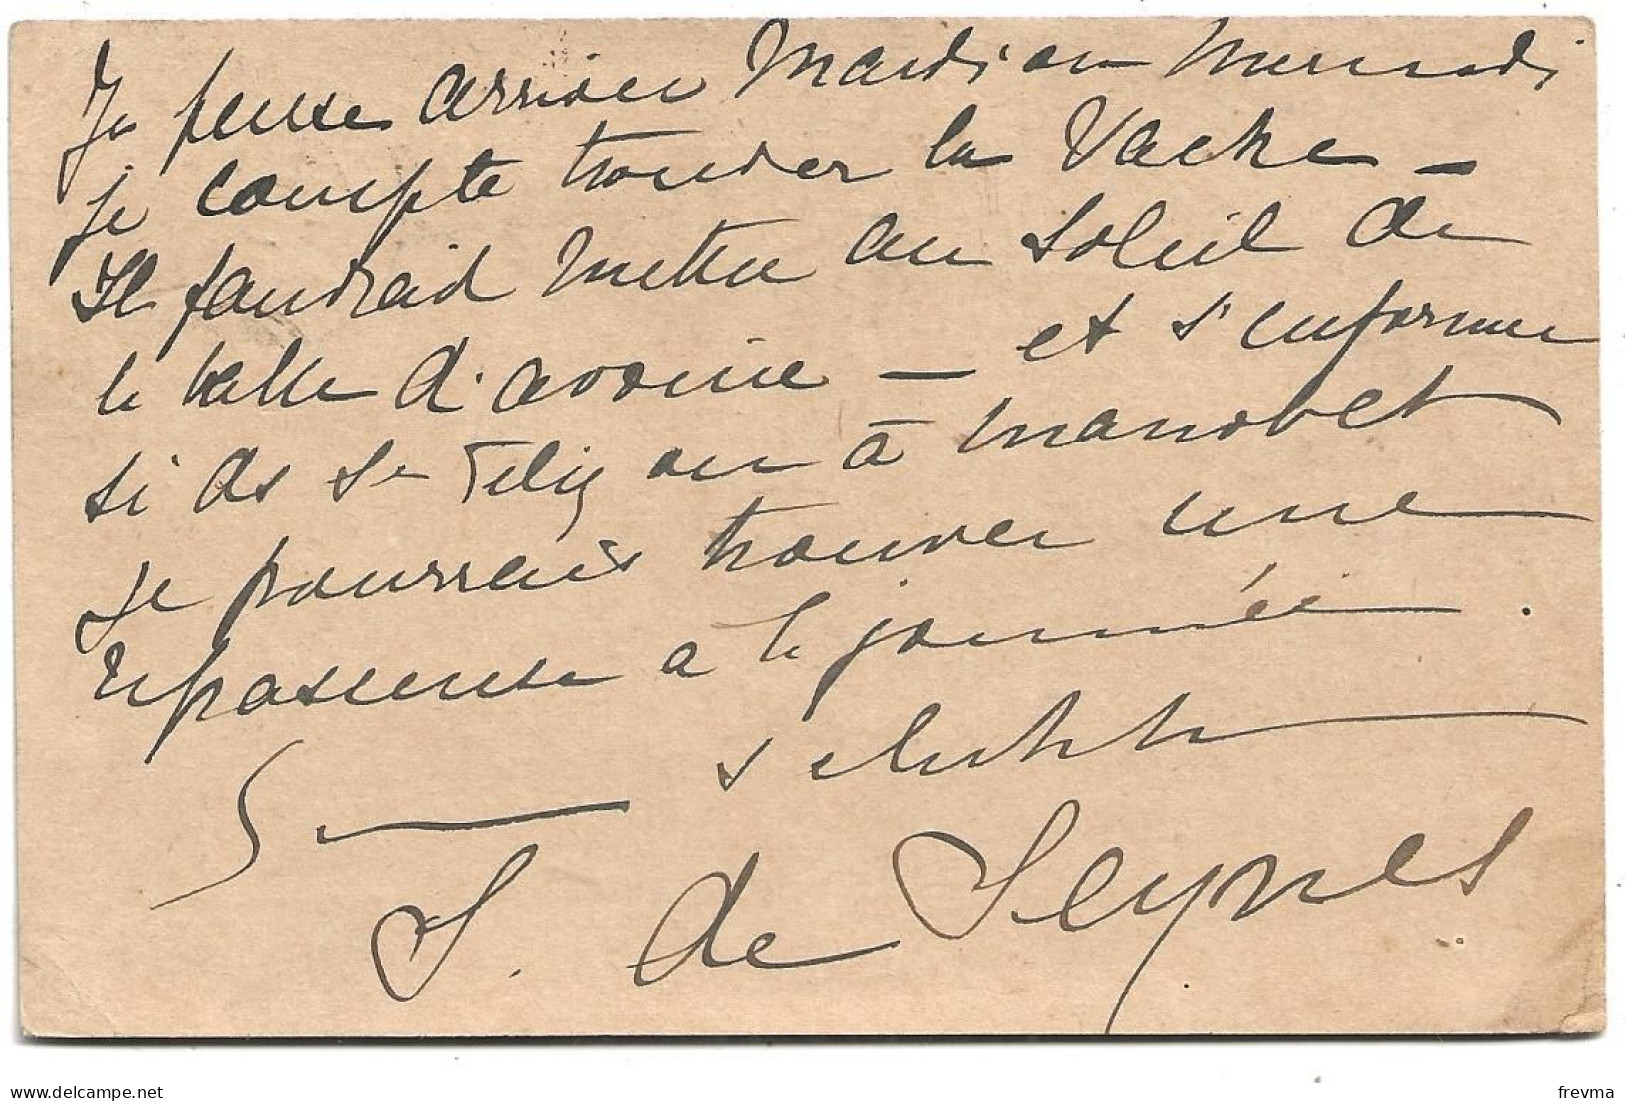 Je pense arriver Mardi ou Mercredi
je compte trouver la Vache –
Il faudrait mettre au soleil de
la balle d'avoine – et s'informer
si à St Felix ou à Manoblet
je pourrais trouver une
repasseuse à la journée.
S. de Seynes
frevma
www.delcampe.net